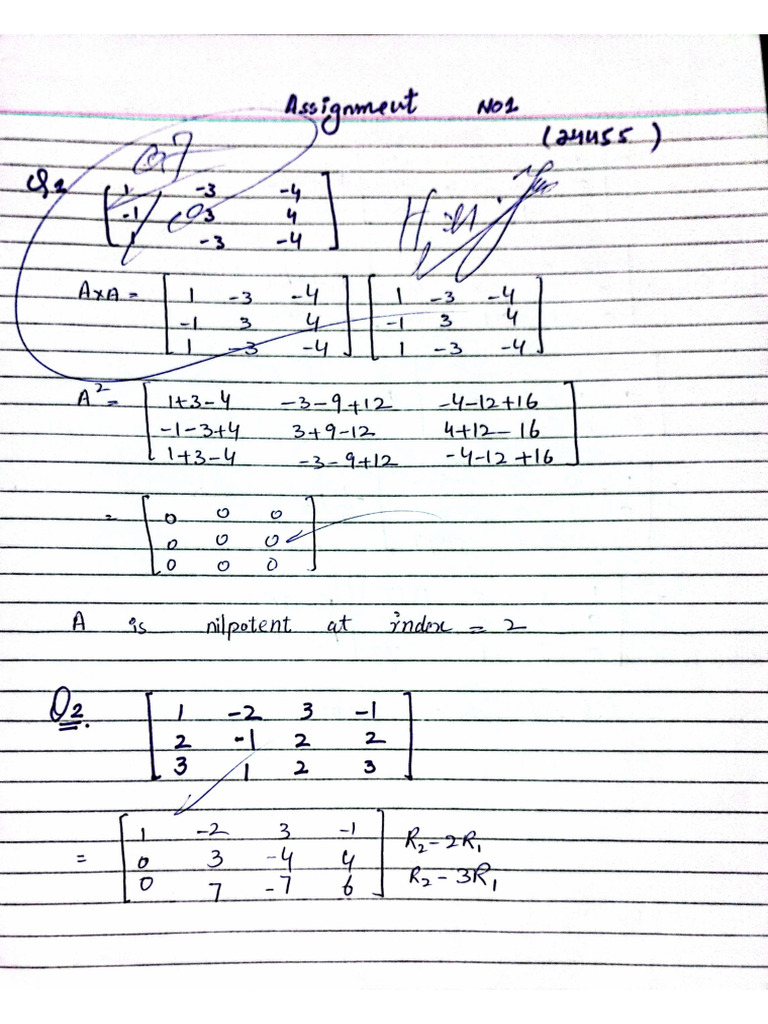 Assignment No1
(24455)
Q1
1 -3 -4
-1 3 4
1 -3 -4
A×A = [ 1 -3 -4 ] [ 1 -3 -4 ]
-1 3 4 -1 3 4
1 -3 -4 1 -3 -4
A² = [ 1+3-4 -3-9+12 -4-12+16 ]
-1-3+4 3+9-12 4+12-16
1+3-4 -3-9+12 -4-12+16
= [ 0 0 0 ]
0 0 0
0 0 0
A is nilpotent at index = 2
Q2. [ 1 -2 3 -1 ]
2 -1 2 2
3 1 2 3
= [ 1 -2 3 -1 ] R₂-2R₁
0 3 -4 4
0 7 -7 6 R₂-3R₁